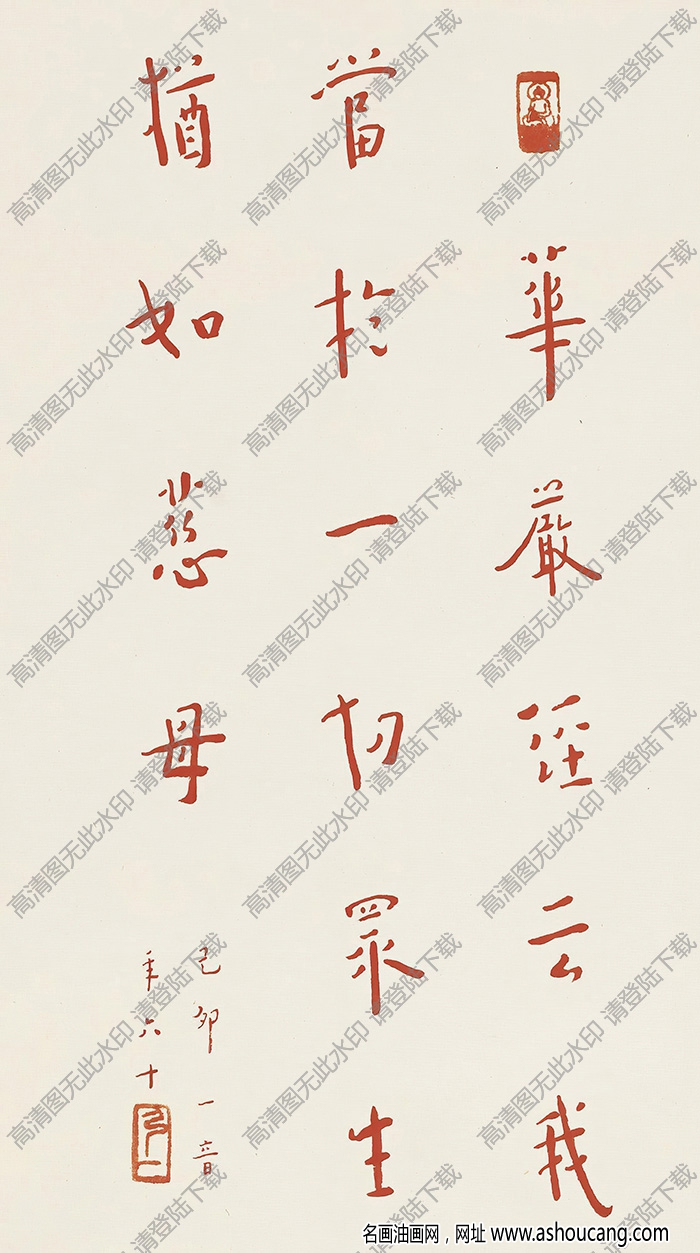 華嚴經云我
當於一切眾生
猶如慈母
己卯一音
年六十
高清图无此水印 请登陆下载
名画油画网，网址 www.ashoucang.com